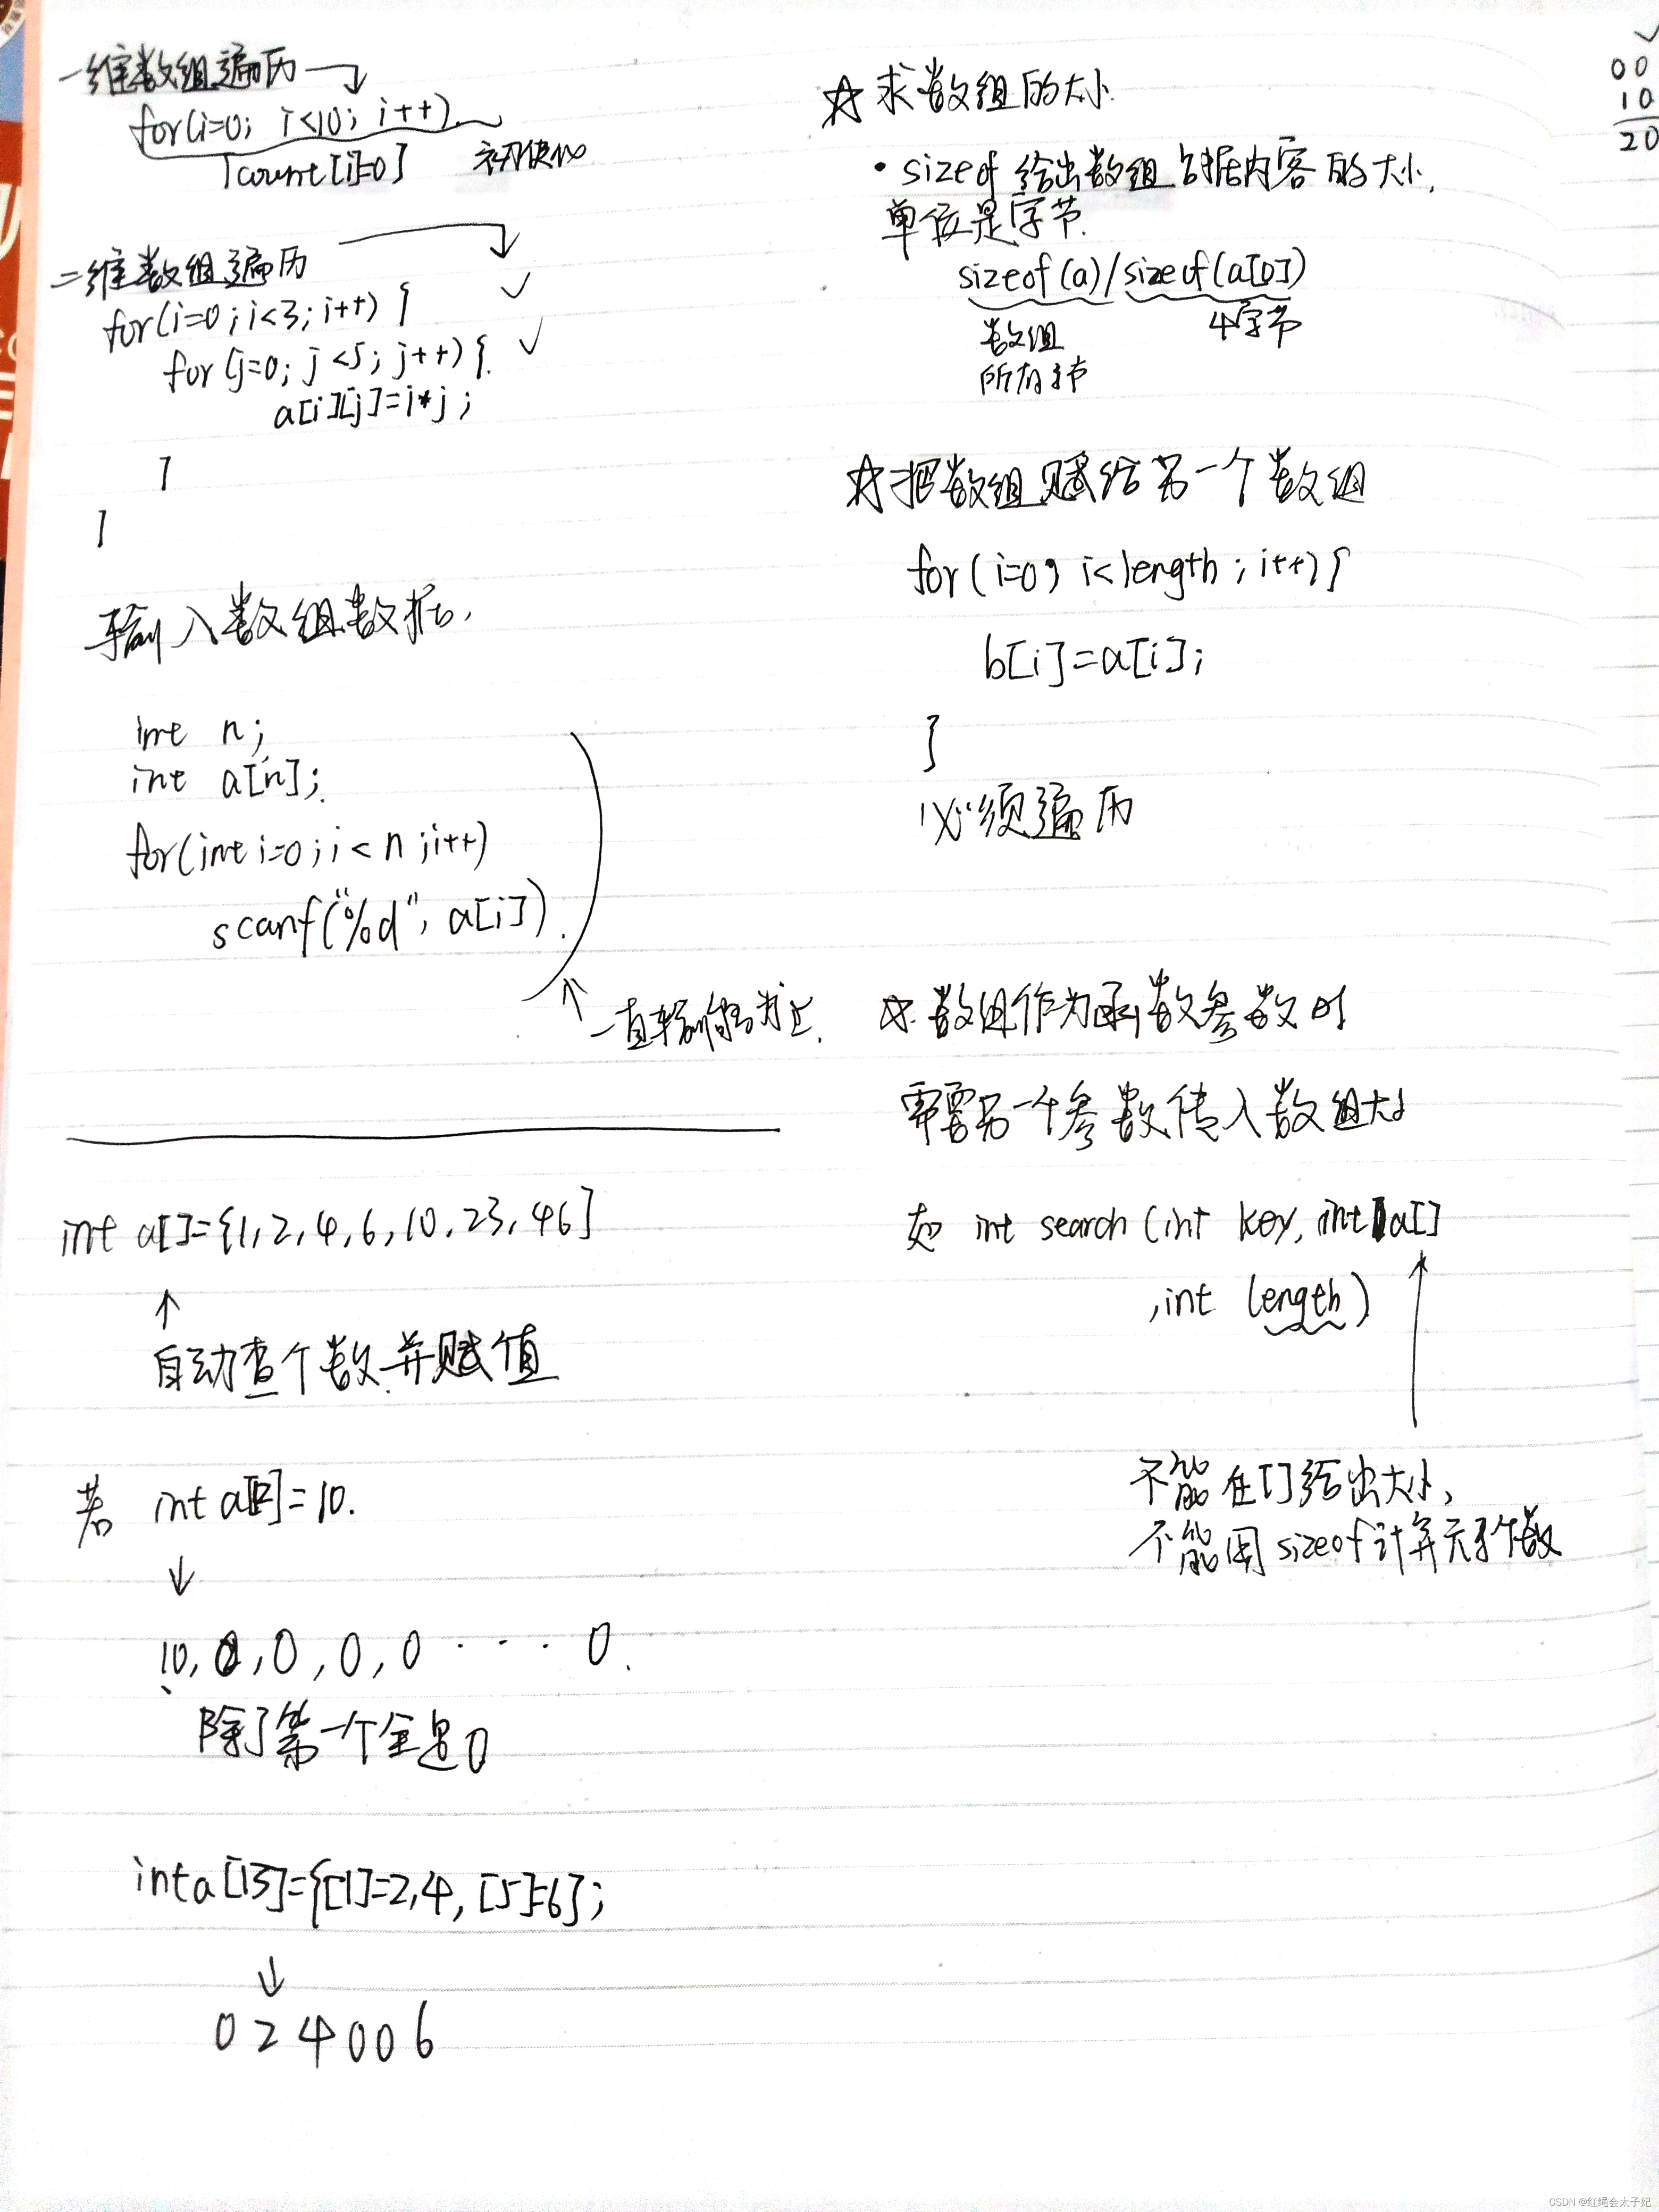 一维数组遍历
for(i=0; i<10; i++)
count[i]=0
初使化
二维数组遍历
for(i=0; i<3; i++) {
for(j=0; j<5; j++) {
a[i][j]=i*j;
}
}
输入数组数据,
int n;
int a[n];
for(int i=0; i<n; i++)
scanf("%d", a[i]).
一直输 为止.
int a[]={1, 2, 4, 6, 10, 23, 46}
自动查个数.并赋值
若 int a[]=10.
10, 0, 0, 0, 0 · · · 0.
除了第一个全是0
int a[13]={[1]=2,4,[5]=6};
0 2 4 0 0 6
☆ 求数组的大小
· sizeof 给出数组占据内容的大小,
单位是字节.
sizeof(a)/sizeof(a[0])
数组
所有字节
4字节
☆ 把数组赋给另一个数组
for(i=0; i<length; i++) {
b[i]=a[i];
}
必须遍历
☆ 数组作为函数参数时
需要另一个参数传入数组大小
如 int search (int key, int a[]
,int length)
不能在[]给出大小,
不能用sizeof计算元素个数
00
10
20
CSDN @红绳会太子妃